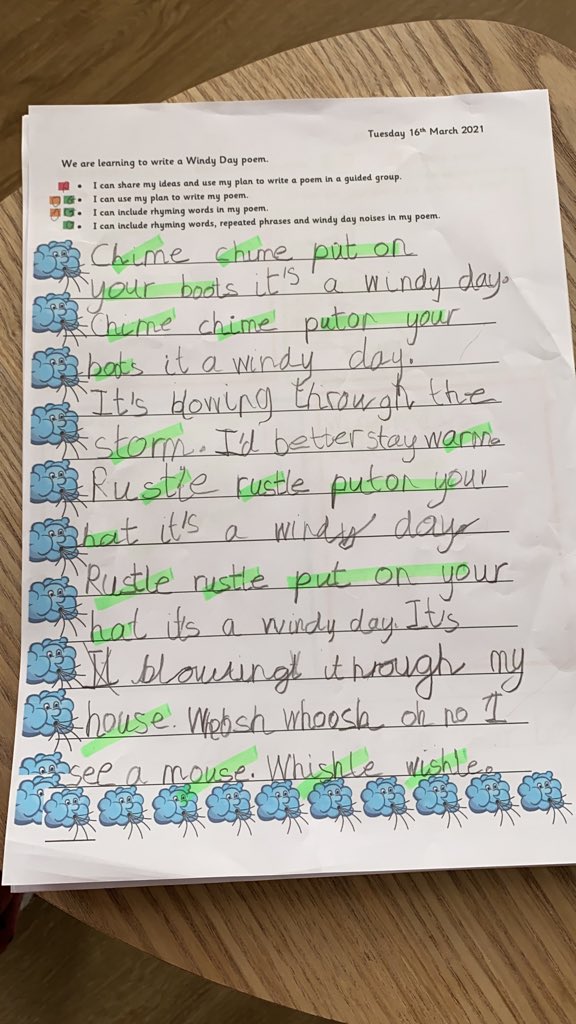 Tuesday 16th March 2021
We are learning to write a Windy Day poem.
• I can share my ideas and use my plan to write a poem in a guided group.
• I can use my plan to write my poem.
• I can include rhyming words in my poem.
• I can include rhyming words, repeated phrases and windy day noises in my poem.
Chime chime put on
your boots it's a windy day.
Chime chime put on your
bots it a windy day.
It's blowing through the
storm. I'd better stay warm.
Rustle rustle put on your
hat it's a windy day
Rustle rustle put on your
hat it's a windy day. It's
blowing through my
house. Woosh whoosh oh no I
see a mouse. Whishle wishle.